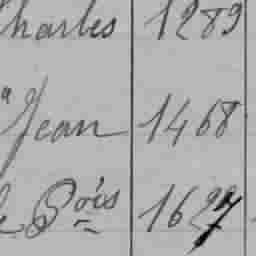 Charles 1289
Jean 1468
Pois 1627